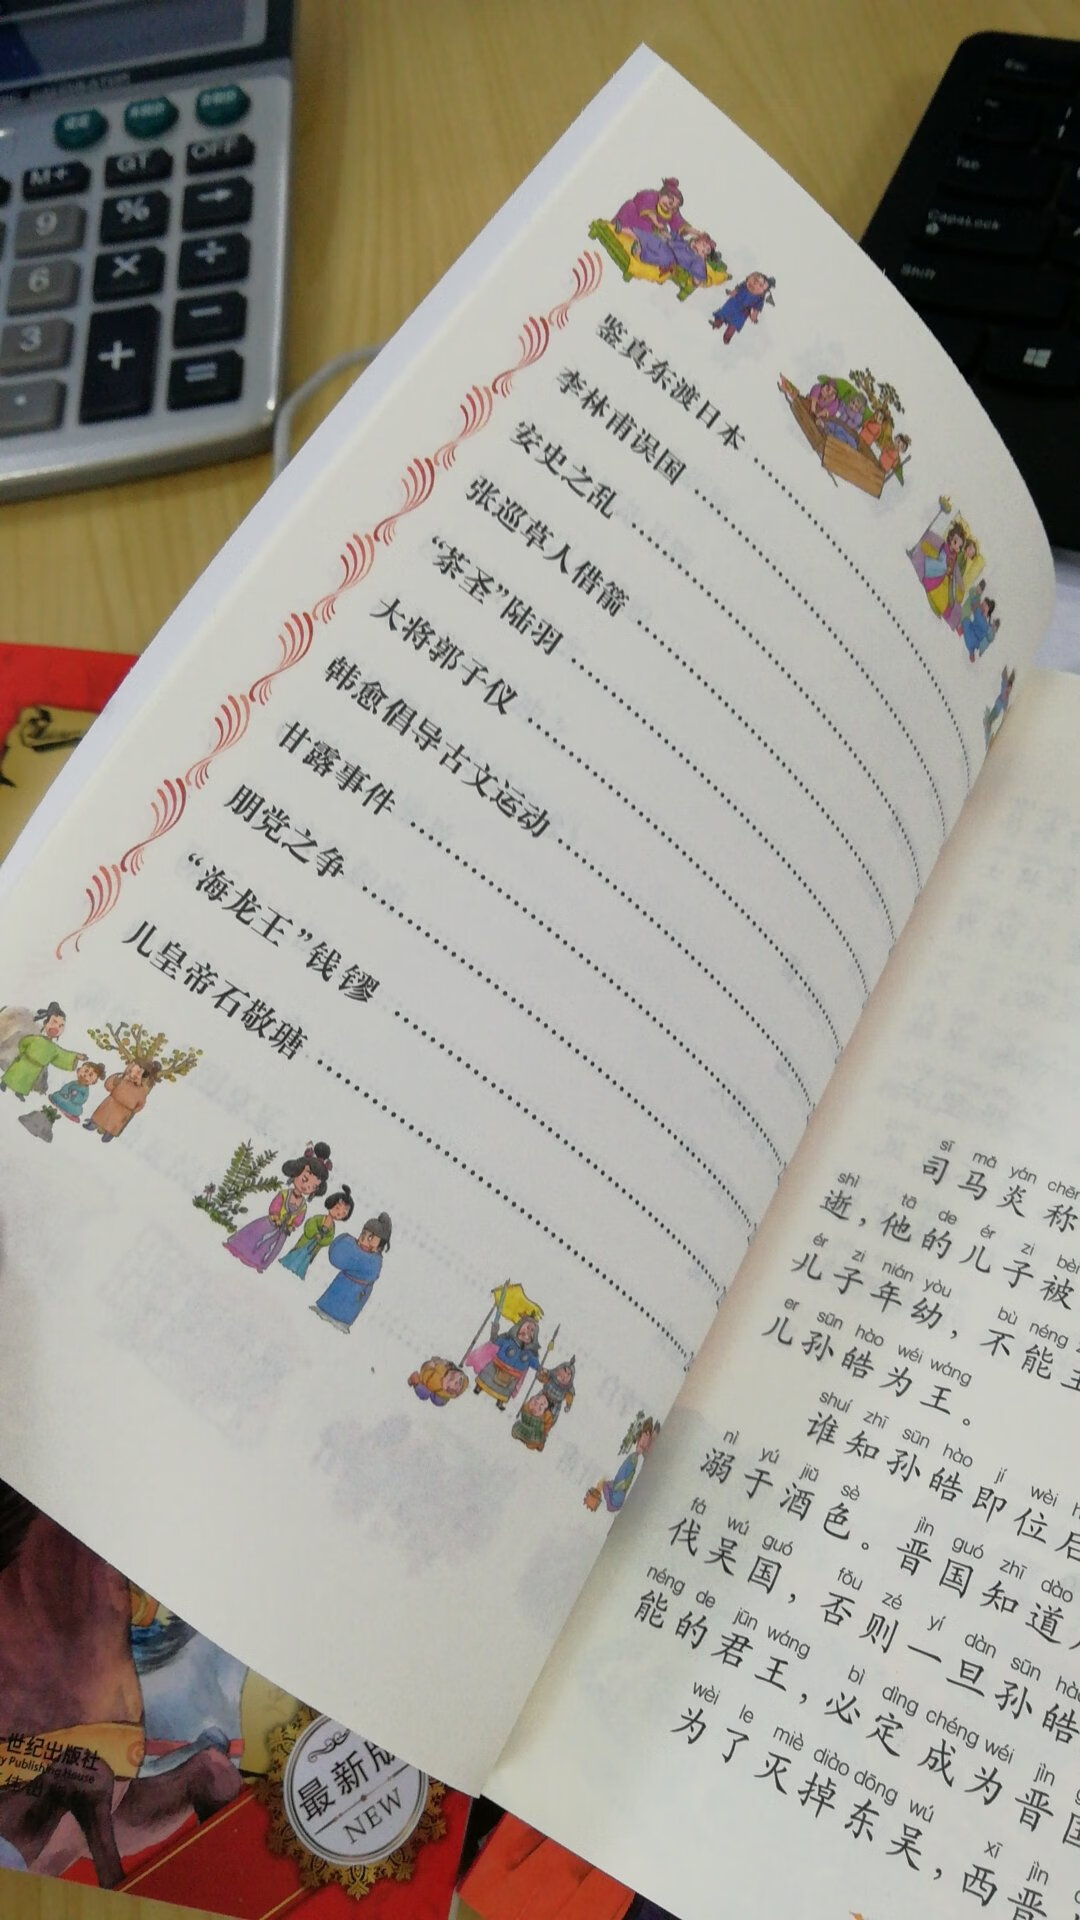 鉴真东渡日本
李林甫误国
安史之乱
张巡草人借箭
“茶圣”陆羽
大将郭子仪
韩愈倡导古文运动
甘露事件
朋党之争
“海龙王”钱镠
儿皇帝石敬瑭
sī mǎ yán chēn
司马炎称
shì tā de ér zi bèi
逝，他的儿子被
ér zi nián yòu bù néng
儿子年幼，不能主
er sūn hào wéi wáng
儿孙皓为王。
shuí zhī sūn hào jí wèi h
谁知孙皓即位后
nì yú jiǔ sè jìn guó zhī dào
溺于酒色。晋国知道
fá wú guó fǒu zé yí dàn sūn hào
伐吴国，否则一旦孙皓
néng de jūn wáng bì dìng chéng wéi jìn g
能的君王，必定成为晋国
wèi le miè diào dōng wú xī jìn
为了灭掉东吴，西晋
M+
GT
OFF
9
%
→
6
×
÷
3
+
−
=
Tab
CapsLock
Shift
世纪出版社
y Publishing House
最新版
NEW